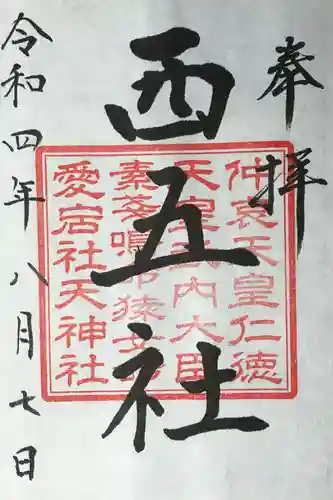 奉拝
西五社
仲哀天皇仁徳
天皇武内大臣
素盞嗚命猿女
愛宕社天神社
令和四年八月七日